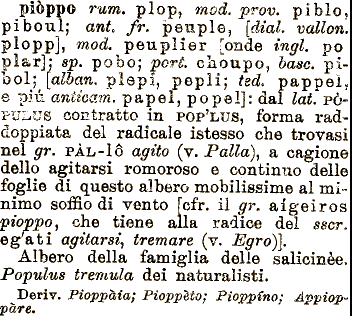 piòppo rum. plop, mod. prov. piblo,
piboul; ant. fr. peuple, [dial. vallon.
plopp], mod. peuplier [onde ingl. po
plar]; sp. pobo; port. choupo, basc. pi-
bol; [alban. plepi, pepli; ted. pappel,
e più anticam. papel, popel]: dal lat. PÒ-
PULUS contratto in POP'LUS, forma rad-
doppiata del radicale istesso che trovasi
nel gr. PÀL-lô agito (v. Palla), a cagione
dello agitarsi romoroso e continuo delle
foglie di questo albero mobilissime al mi-
nimo soffio di vento [cfr. il gr. aígeiros
pioppo, che tiene alla radice del sscr.
eg'ati agitarsi, tremare (v. Egro)].
Albero della famiglia delle salicinèe.
Populus tremula dei naturalisti.
Deriv. Pioppàia; Pioppèto; Pioppíno; Appiop-
pàre.